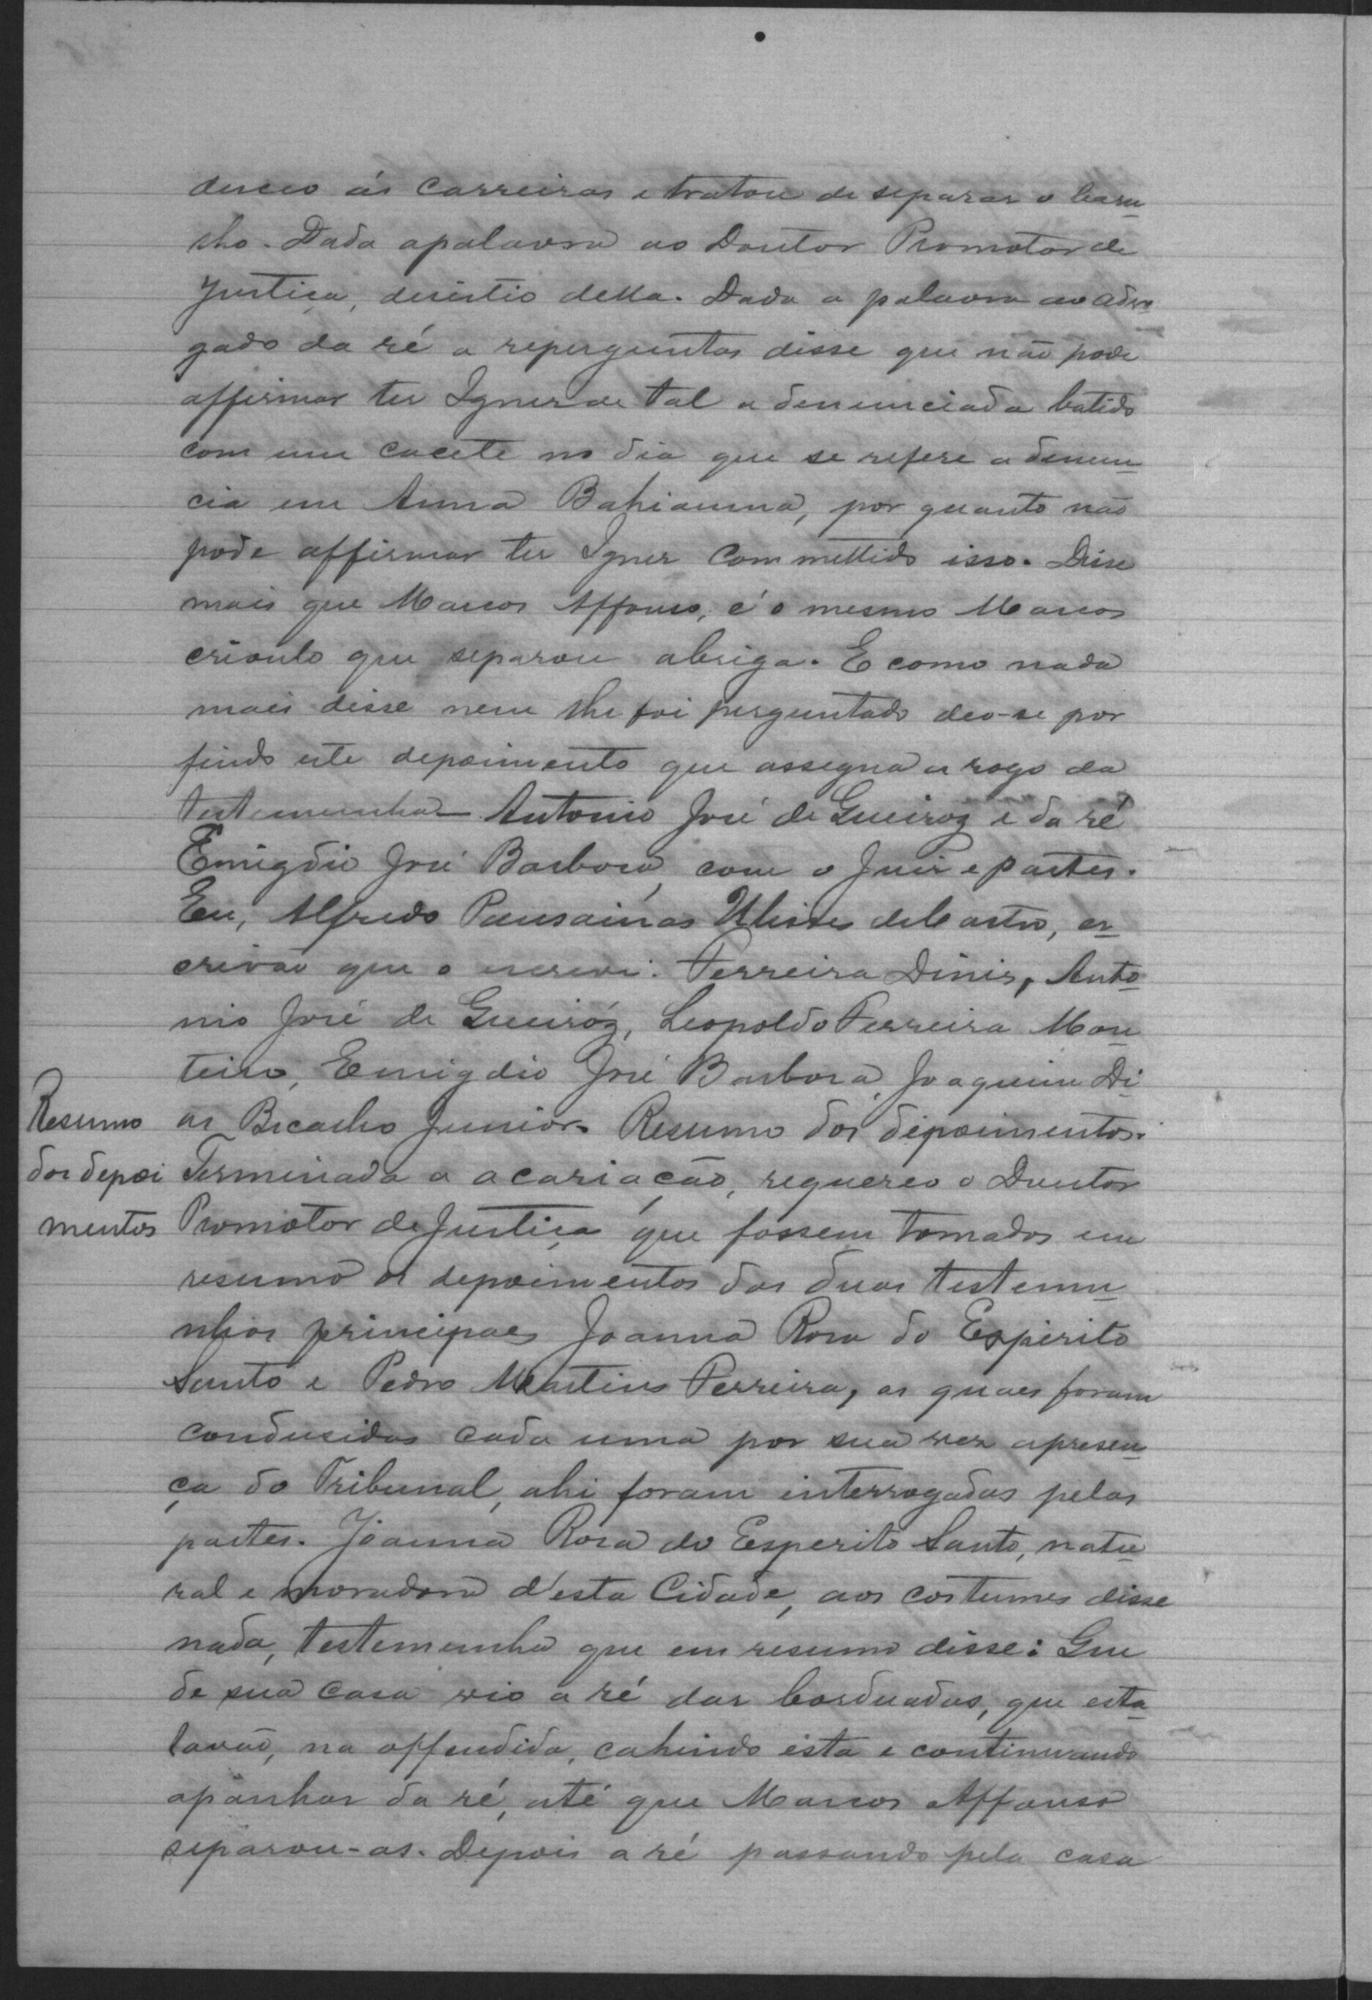 desceo ás carreiras e tratou de separar o baru-
lho. Dada apalavra ao Doutor Promotor de
Justiça, desistio della. Dada a palavra ao advo-
gado da ré a reperguntas disse que não pode
affirmar ter Ignez de tal a denunciada batido
com um cacete no dia que se refere a denun-
cia em Anna Bahianna, por quanto não
pode affirmar ter Ignez Commettido isso. Disse
mais que Marcos Affonso, é o mesmo Marcos
crioulo que separou abriga. E como nada
mais disse nem lhe foi perguntado deo-se por
findo este depoimento que assegna a rogo da
testemunha Antonio José de Queiroz e da ré
Emigdio José Barbosa, com o Juiz e partes.
Eu, Alfredo Pausainas Ulisses de Castro, es-
crivão que o escrevi. Ferreira Dinis, Anto-
nio José de Queiróz, Leopoldo Ferreira Mon-
teiro, Emigdio José Barbosa, Joaquim Di-
as Bicalho Junior. Resumo dos depoimentos.
Resumo
dos depoi
mentos
Terminada a acariação, requereo o Doutor
Promotor de Justiça que fossem tomados em
resumo os depoimentos das duas testemu-
nhas principaes Joanna Rosa do Espirito
Santo e Pedro Martins Ferreira, as quaes foram
condusidas cada uma por sua vez apresen-
ça do Tribunal, ahi foram interrogadas pelas
partes. Joanna Rosa do Esperito Santo, natu-
ral e moradora d'esta Cidade, aos costumes disse
nada, testemunha que em resumo disse: Que
de sua casa vio a ré dar borduadas, que esta-
lavão, na offendida, cahindo esta e continuando
apanhar da ré, até que Marcos Affonso
separou-as. Depois a ré passando pela casa